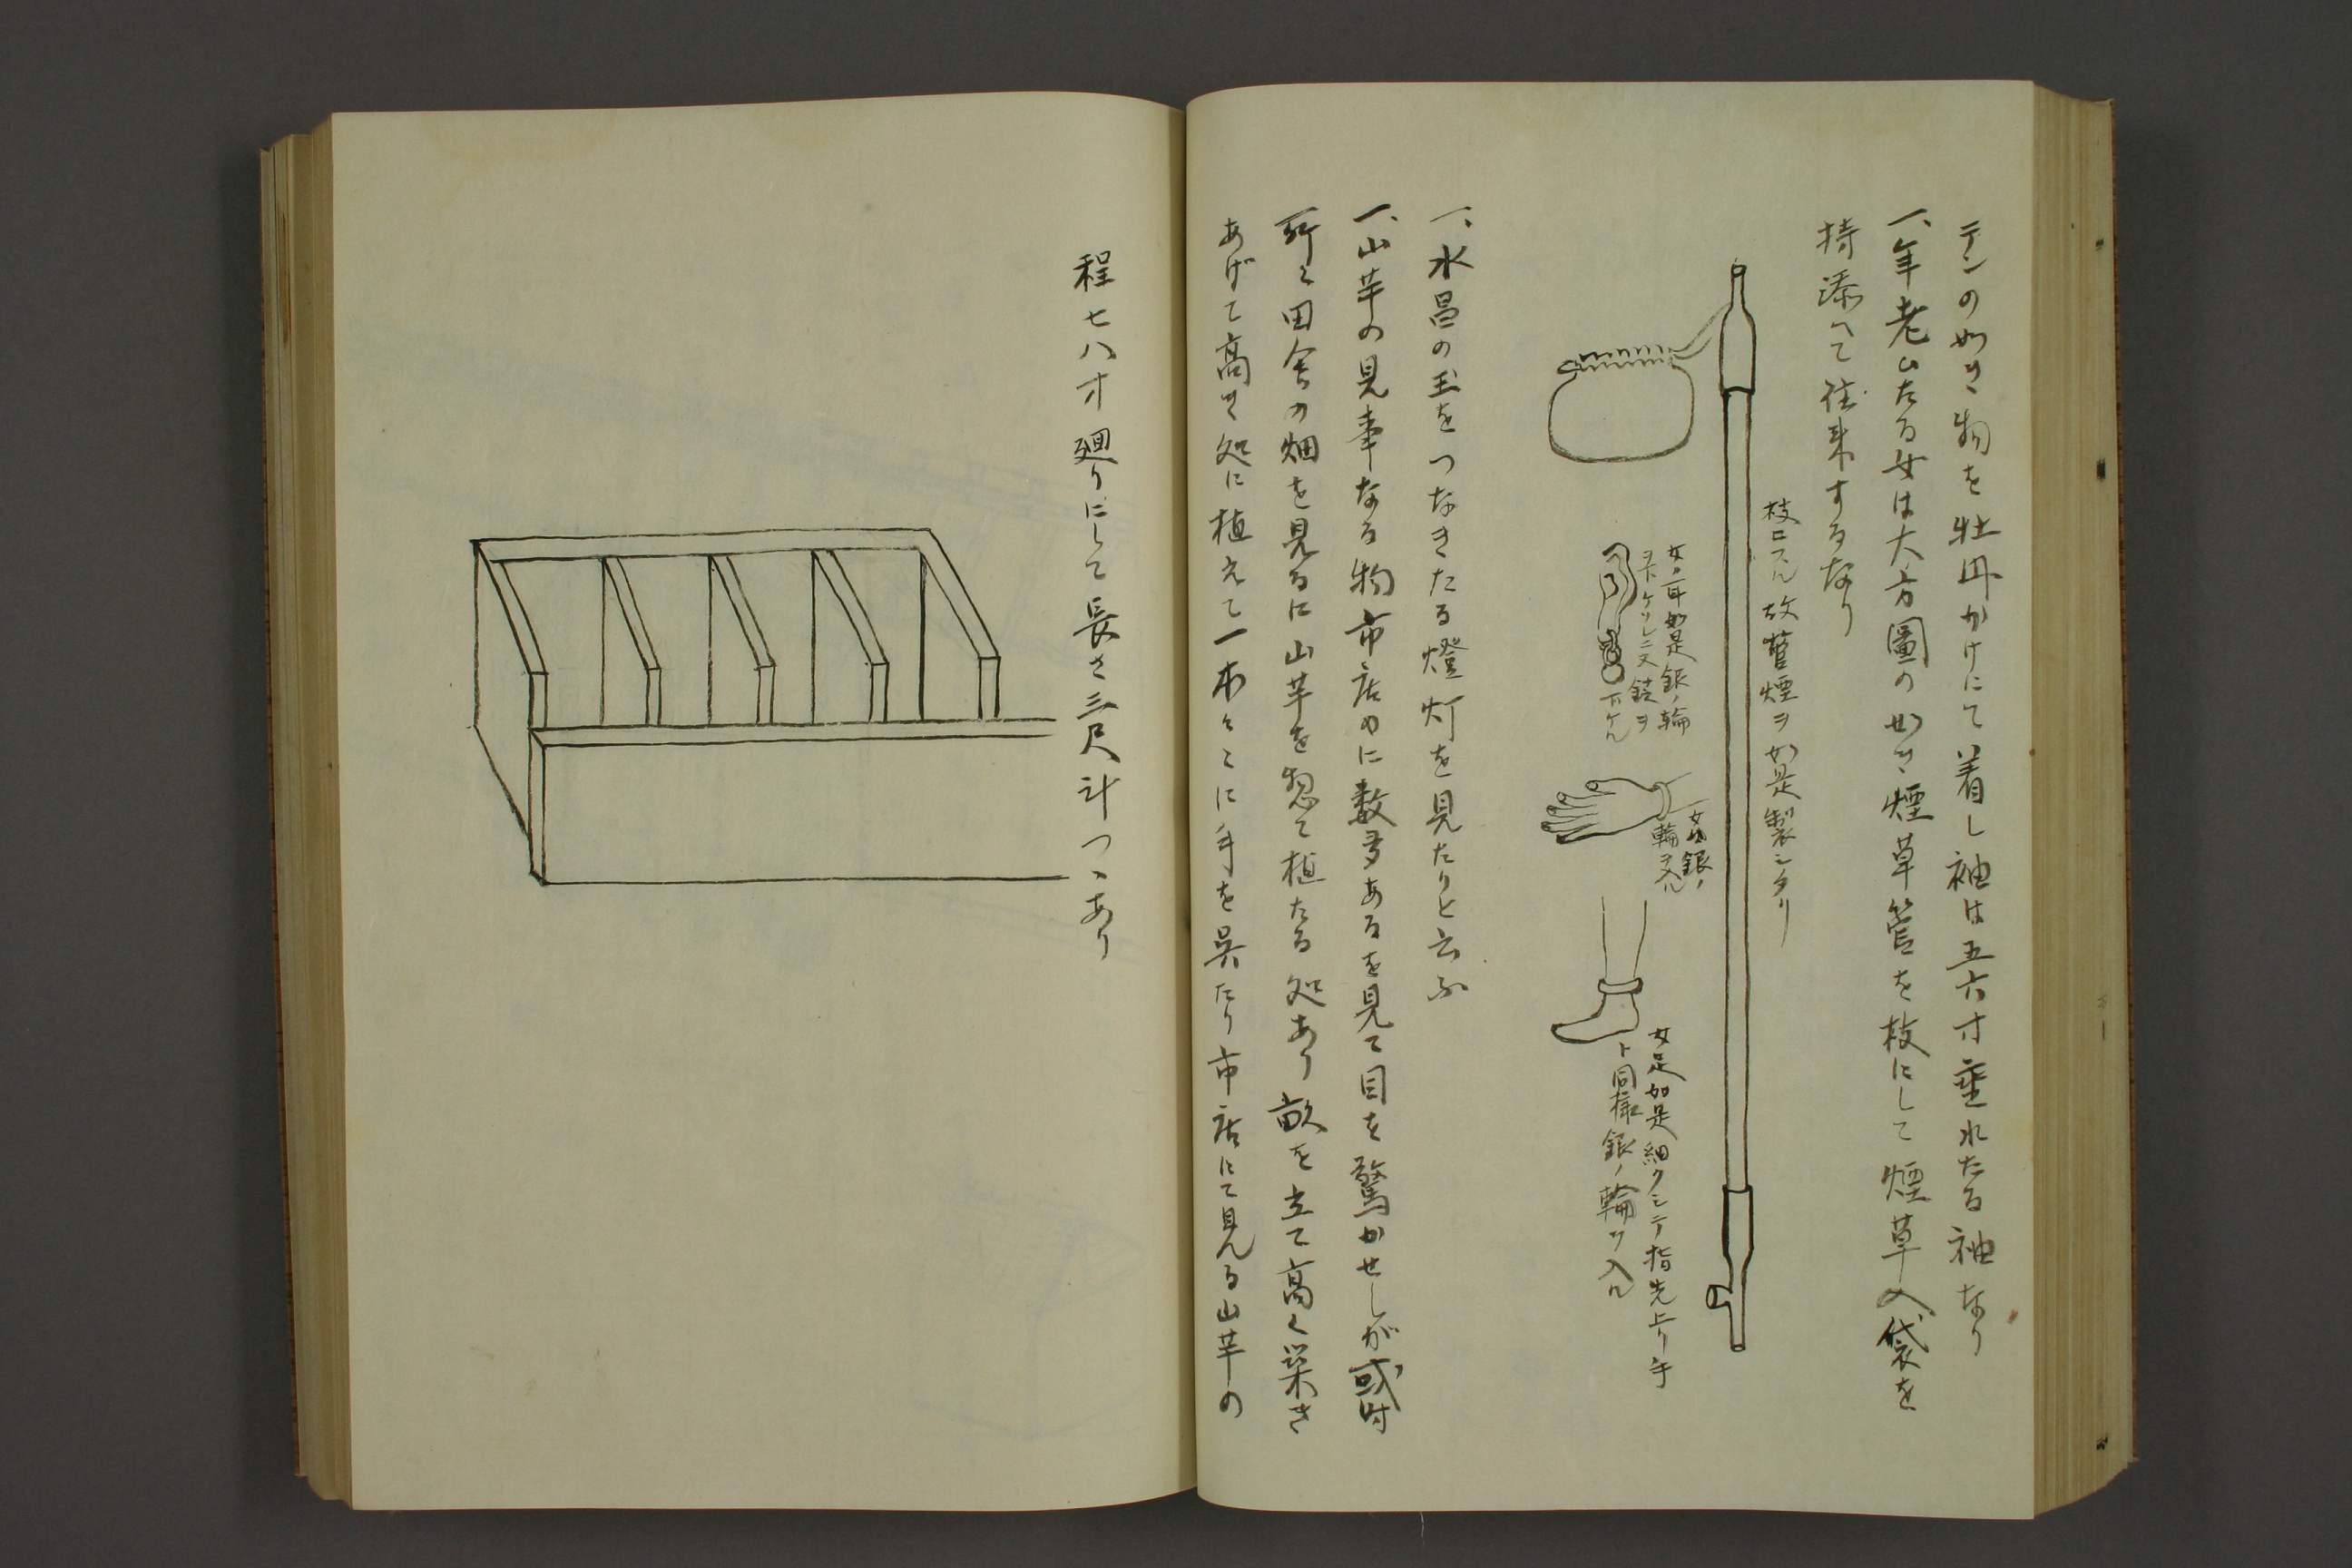 テンの如き物を牡丹かけにて着し袖は五六寸垂れたる袖なり
一、年老ひたる女は大方圖の如き煙草管を枝にして煙草入袋を
持添へて往来するなり
枝ニスル故菅煙ヲ如是製シタリ
女ノ耳如是銀ノ輪
下ケル
女如銀ノ
輪ヲ入ル
女足如是細クシテ指先上リ手
ト同様銀ノ輪ヲ入ル
一、水昌の玉をつなきたる燈灯を見たりと云ふ
一、山芋の見事なる物市店のに数多あるを見て目を驚かせしが或時
所々田舎の畑を見るに山芋を惣て植たる処あり畝を立て高く築き
あげて高き処に植えて一本々々に手を呉たり市店にて見る山芋の
程七八才廻りにして長さ三尺計つゝあり